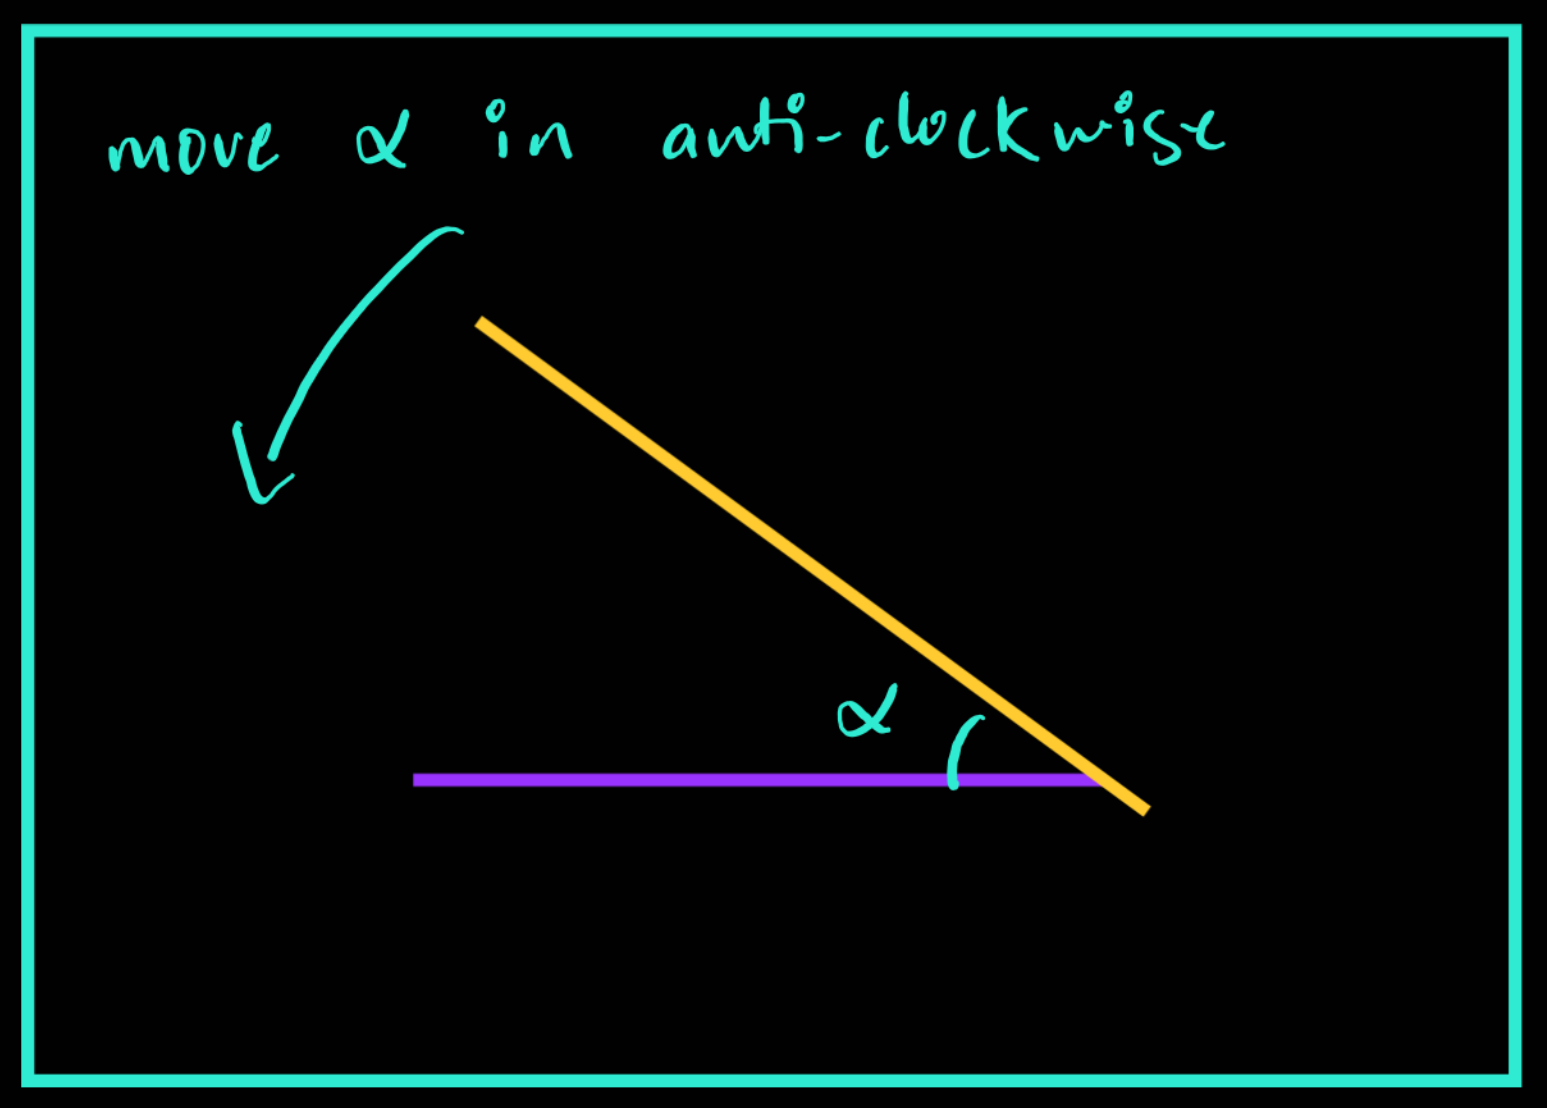 move α in anti-clockwise
α